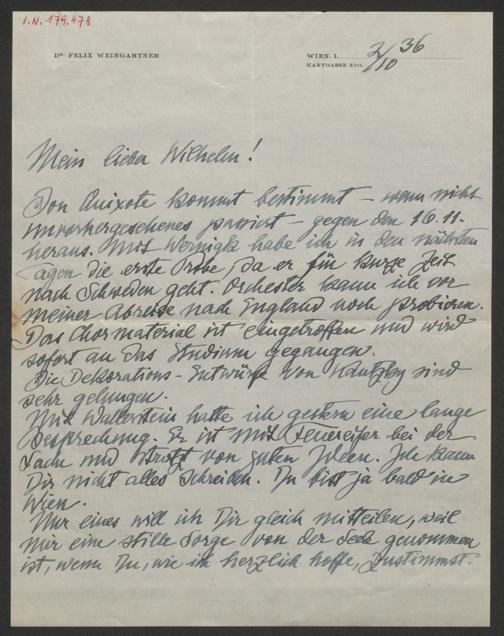 I.N. 179.478
Dr. FELIX WEINGARTNER
WIEN, I. 2/10 36
KANTGASSE 3/III.
Mein lieber Wilhelm!
Don Quixote kommt bestimmt – wenn nicht
unvorhergesehenes passirt – gegen den 16.11.
heraus. Mit Wernigk habe ich in den nächsten
Tagen die erste Probe, da er für kurze Zeit
nach Schweden geht. Orchester kann ich vor
meiner Abreise nach England noch probieren.
Das Chormaterial ist eingetroffen und wird
sofort an das Studium gegangen.
Die Dekorations-Entwürfe von Kautzky sind
sehr gelungen.
Mit Wallerstein hatte ich gestern eine lange
Besprechung. Er ist mit Feuereifer bei der
Sache und strotzt von guten Ideen. Ich kann
Dir nicht alles schreiben. Du bist ja bald in
Wien.
Nur eines will ich Dir gleich mitteilen, weil
mir eine stille Sorge von der Seele genommen
ist, wenn Du, wie ich herzlich hoffe, zustimmst.